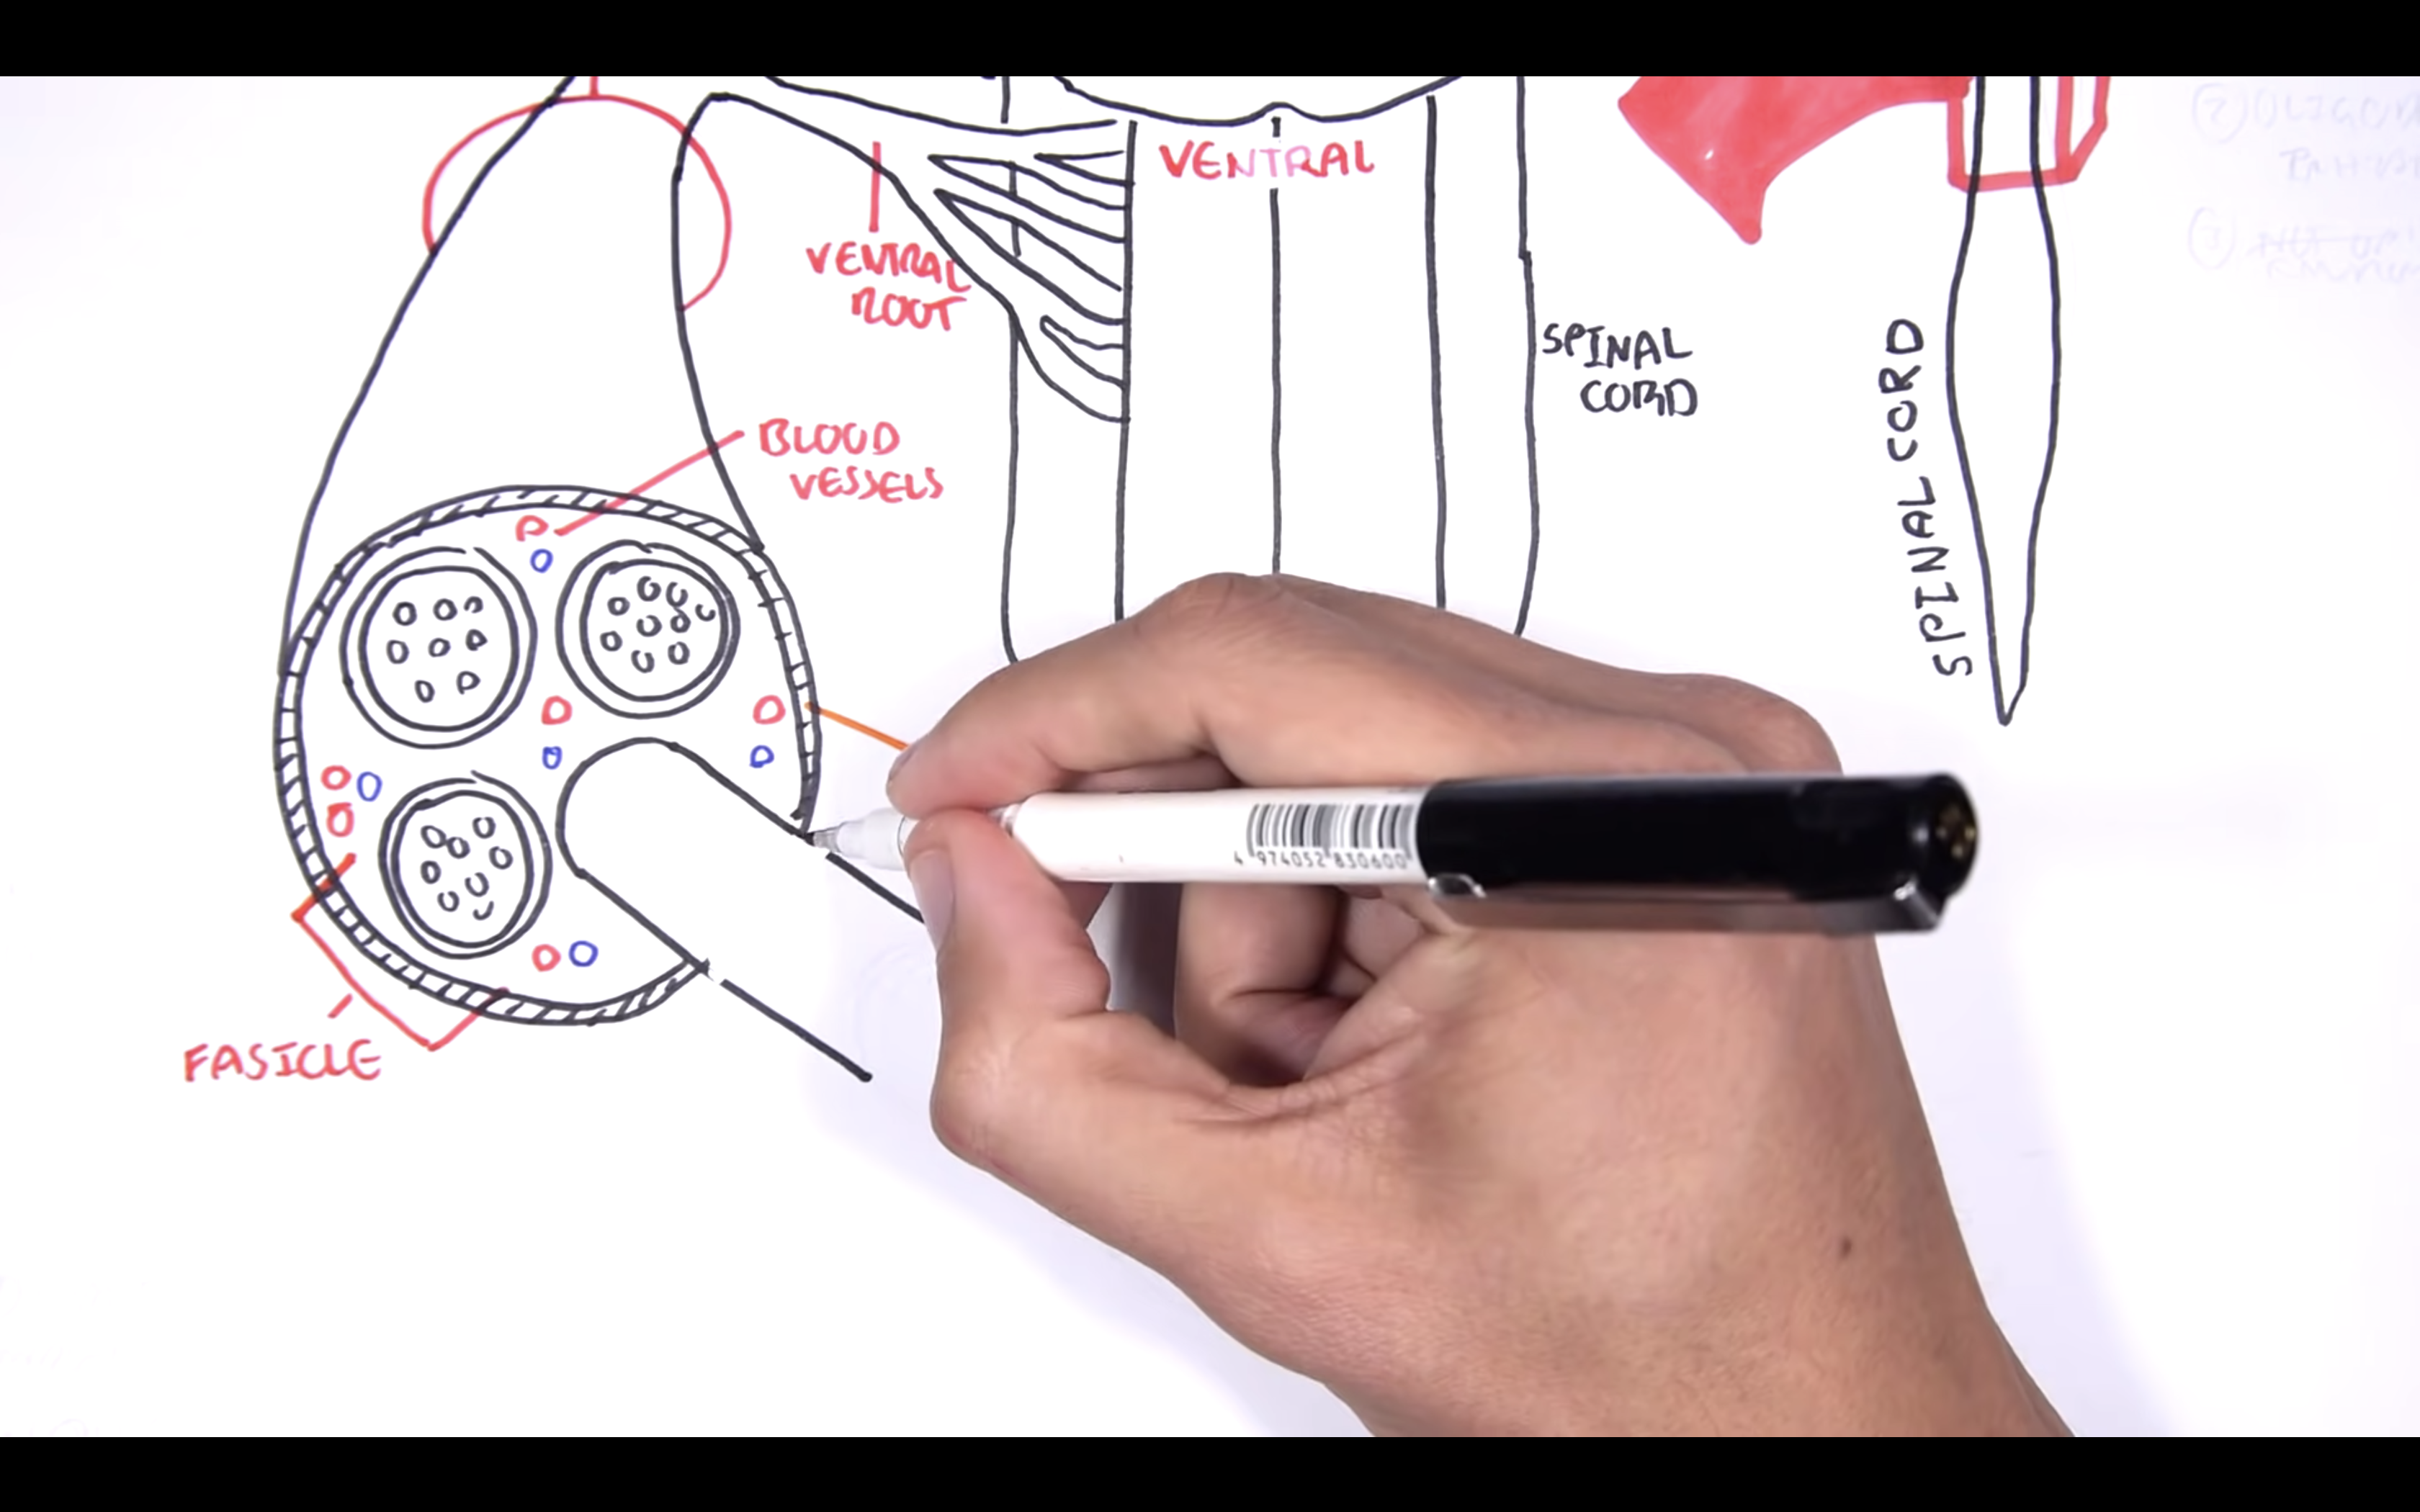 VENTRAL
VENTRAL
ROOT
SPINAL
CORD
SPINAL CORD
BLOOD
VESSELS
4 974052 830600
FASICLE